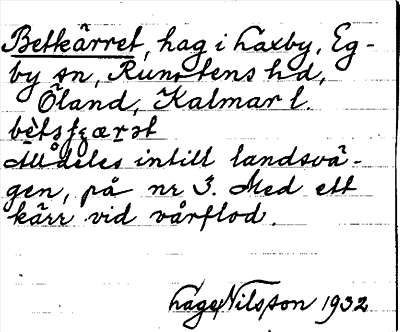 Betkärret, hag i Laxby, Eg-
by sn, Runstens hd,
Öland, Kalmar l.
bètsҫærət
Alldeles intill landsvä-
gen, på nr 3. Med ett
kärr vid vårflod.
Lage Nilsson 1932